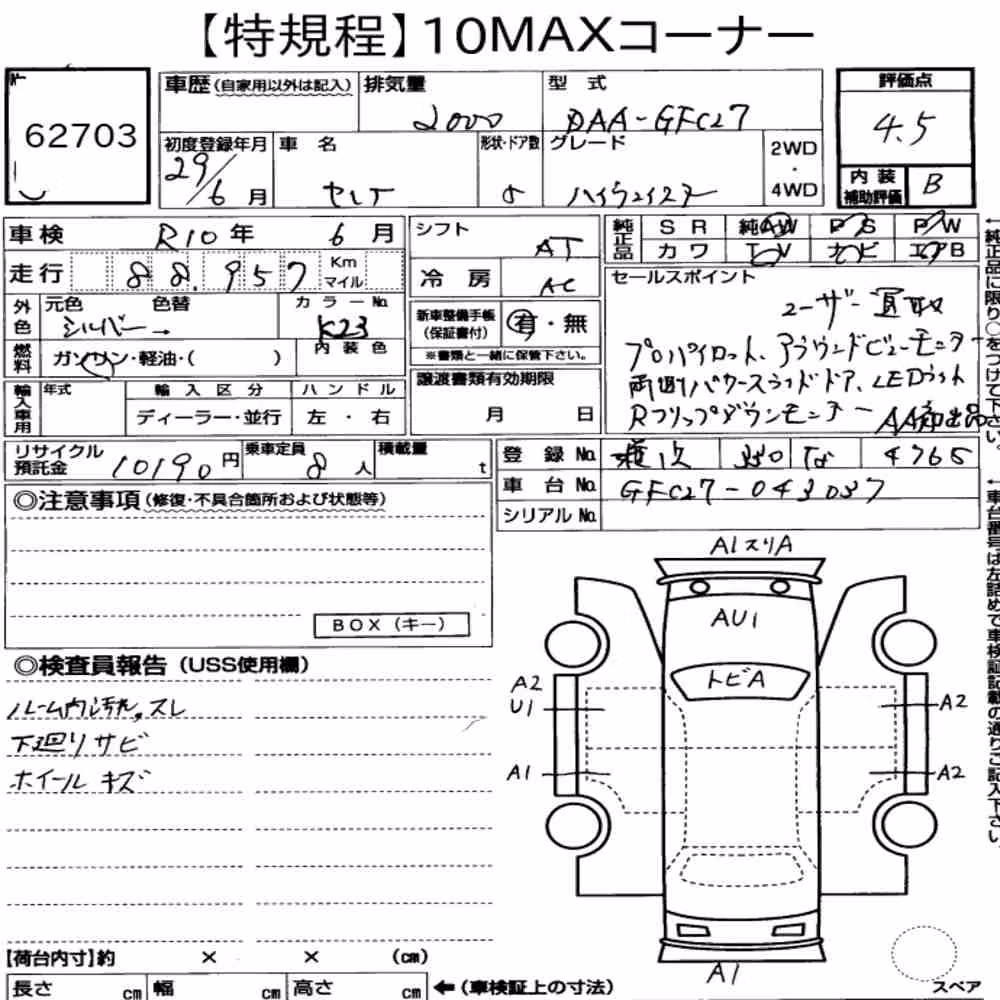 【特規程】10MAXコーナー
62703
車歴 (自家用以外は記入)
排気量
2000
型式
DAA-GFC27
評価点
4.5
初度登録年月
29/6月
車名
セレナ
形状・ドア数
5
グレード
ハイウェイスター
2WD
・
4WD
内装
補助評価
B
車検 R10年 6月
シフト
AT
純正品
SR 純AW P/S P/W
カワ TV ナビ エアB
走行 88,957 Km
マイル
冷房
AC
セールスポイント
ユーザー買取
プロパイロット、アラウンドビューモニター
両側パワースライドドア、LEDライト
Rフリップダウンモニター AA初出品
外色
元色 色替
シルバー→
カラーNo.
K23
新車整備手帳
(保証書付)
有・無
※書類と一緒に保管下さい。
燃料
ガソリン・軽油・( )
内装色
輸入車用
年式
輸入区分
ハンドル
ディーラー・並行
左・右
譲渡書類有効期限
月 日
リサイクル
預託金
10190円
乗車定員
8人
積載量
t
登録No. 350 な 4765
車台No. GFC27-043037
シリアルNo.
◎注意事項(修復・不具合箇所および状態等)
BOX(キー)
◎検査員報告(USS使用欄)
ルーム内汚れ、スレ
下廻りサビ
ホイールキズ
A1スリA
AU1
トビA
A2
U1
A2
A1
A2
A1
【荷台内寸】約 × × (cm)
長さ cm 幅 cm 高さ cm ←(車検証上の寸法)
スペア
←純正品に限り○をつけて下さい。
←車台番号は左詰めで車検証記載の通りご記入下さい。